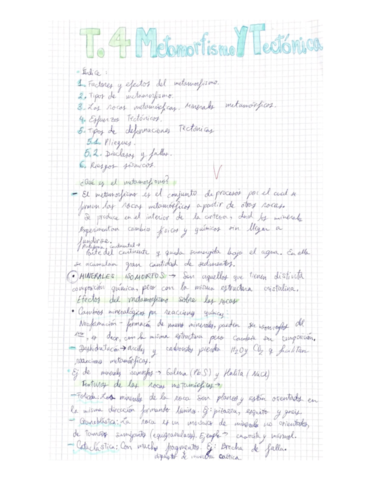 T.4 Metamorfismo Y Tectónica
- Índice:
1. Factores y efectos del metamorfismo.
2. Tipos de metamorfismo.
3. Las rocas metamórficas. Minerales metamórficos.
4. Esfuerzos Tectónicos.
5. Tipos de deformaciones Tectónicas
5.1. Pliegues.
5.2. Diaclasas y fallas.
6. Riesgos sísmicos
¿Qué es el metamorfismo?
- El metamorfismo es el conjunto de procesos por el cual se
forman las rocas metamórficas a partir de otras rocas
Se produce en el interior de la corteza, donde los minerales
experimentan cambios físicos y químicos sin llegar a
fundirse.
Parte del continente y queda sumergida bajo el agua. En ella
se acumulan gran cantidad de sedimentos.
MINERALES ISOMORFOS → Son aquellos que tienen distinta
composición química, pero con la misma estructura cristalina.
Efectos del metamorfismo sobre las rocas
• Cambios mineralógicos por reacciones químicas.
Neoformación - formación de nuevos minerales, pueden ser isomorfos del
es decir, con la misma estructura pero cambia su composición.
- Deshidratación → y pierden H2O y CO2 y
reacciones metamórficas.
• Ej de minerales isomorfos → Galena (PbS) y Halita (NaCl)
Texturas de las rocas metamórficas →
- Foliada: Los minerales de la roca son planos y están orientados en
la misma dirección formando láminas. Ej: pizarra, esquisto y gneis.
- Granoblástica: La roca es un mosaico de minerales no orientados,
de tamaños semejantes Ejemplo → cuarcita y mármol.
- Cataclástica: Con muchos fragmentos Ej: Brecha de falla